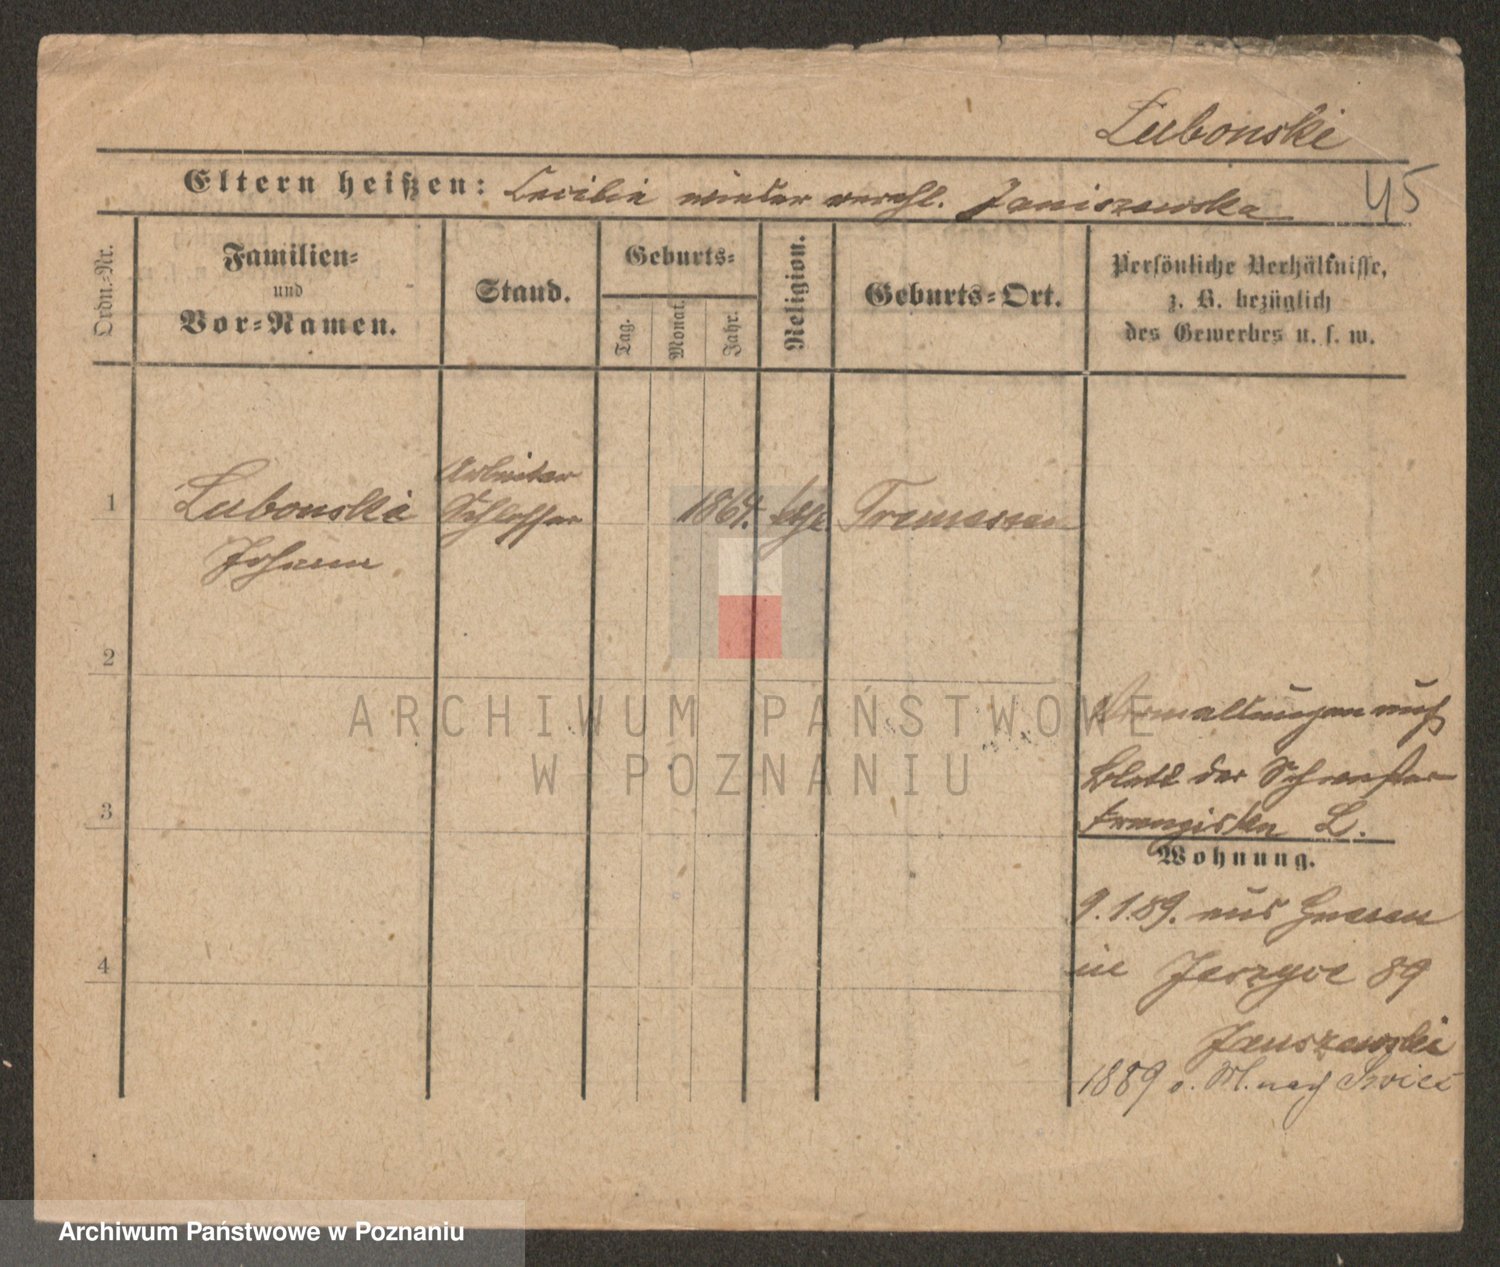 Lubonski
Eltern heißen: Cecilie wieder verehl. Janiszewska
45
Ordn.-Nr.
Familien-
und
Vor-Namen.
Stand.
Geburts-
Tag.
Monat.
Jahr.
Religion.
Geburts-Ort.
Persönliche Verhältnisse,
z. B. bezüglich
des Gewerbes u. s. w.
1
Lubonski
Johann
Arbeiter
Schlosser
1864.
kath
Tremessen
2
3
4
auf
Blatt der Schwester
Franziska L.
Wohnung.
9.1.89. aus Gnesen
in Jerzyce 89
Januszewski
1889 o. M. nach
ARCHIWUM PAŃSTWOWE
W POZNANIU
Archiwum Państwowe w Poznaniu